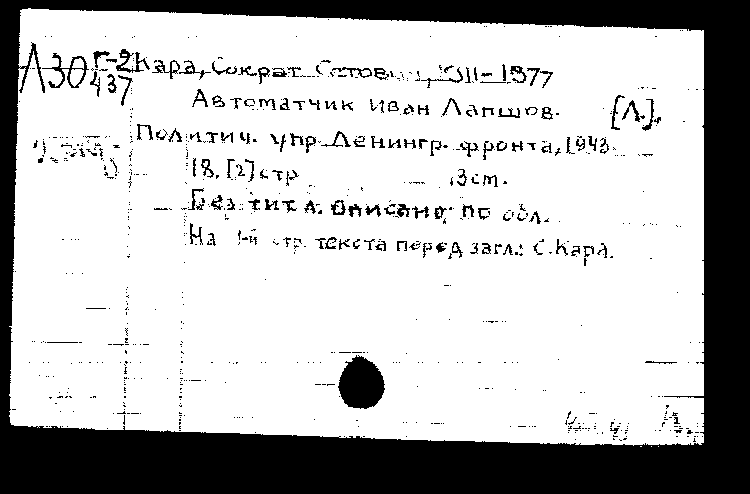 Л30 Г-2
437
Кара, Сократ Сетович, 1911-1977
Автоматчик Иван Лапшов. [Л.],
Политич. упр. Ленингр. фронта, 1943.
18, [2] стр
Без тит. л. Описано по обл.
На 1-й стр. текста перед загл.: С. Кара.